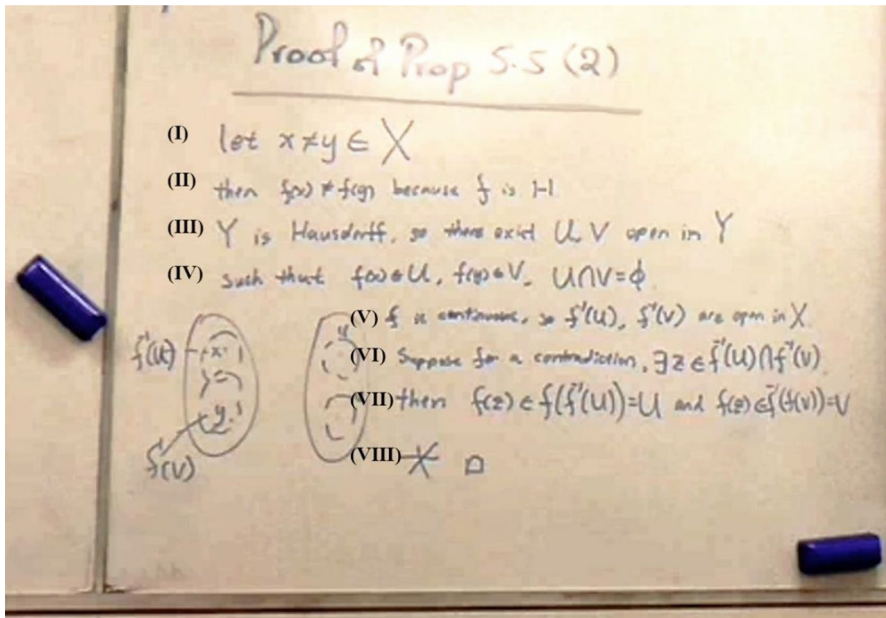 Proof of Prop 5.5 (2)
(I) let x≠y ∈ X
(II) then f(x) ≠ f(y) because f is 1-1
(III) Y is Hausdorff, so there exist U, V open in Y
(IV) such that f(x)∈U, f(y)∈V, U∩V=∅
(V) f is continuous, so f⁻¹(U), f⁻¹(V) are open in X
(VI) Suppose for a contradiction, ∃z∈f⁻¹(U)∩f⁻¹(V)
(VII) then f(z) ∈ f(f⁻¹(U))=U and f(z)∈f⁻¹(f(V))=V
(VIII) X □
f⁻¹(U)
x
y
f⁻¹(V)